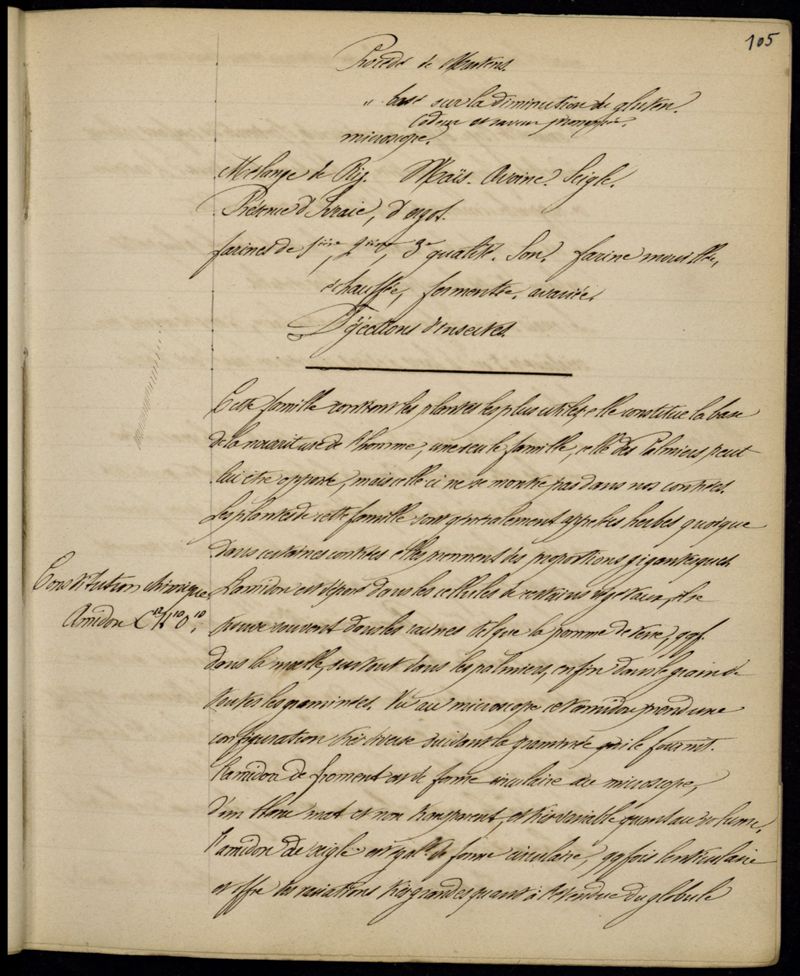 105
Procédé de
" basé sur la diminution du gluten.
Odeur et saveur
microscope.
Mélange de Riz. Maïs. Avoine. Seigle.
Présence d'Ivraie, d'ergot.
farines de 1ière 2ième 3e qualité. Son. farine mouillée,
échauffée, fermentée, avariée.
Déjections d'insectes.
Cette famille contient les plantes les plus utiles, elle constitue la base
de la nourriture de l'homme, une seule famille, celle des Palmiers peut
lui être opposée, mais celle ci ne se montre pas dans nos contrées.
Les plantes de cette famille sont généralement appelées herbes quoique
dans certaines contrées elles prennent des proportions gigantesques.
Constitution chimique
Amidon C12H10O10.
L'amidon est déposé dans les cellules de certains végétaux, se
trouve souvent dans les racines tel que la pomme de terre, qqf.
dans la moelle, surtout dans les palmiers, enfin dans le grain de
toutes les graminées. Vu au microscope cet amidon prend une
configuration très diverse suivant la graminée qui le fournit.
L'amidon de froment est de forme circulaire au microscope,
d'un blanc mat et non transparent, et très variable quant au volume.
L'amidon de seigle est égalt de forme circulaire, qqfois lenticulaire
et offre des variations très grandes quant à l'étendue du globule